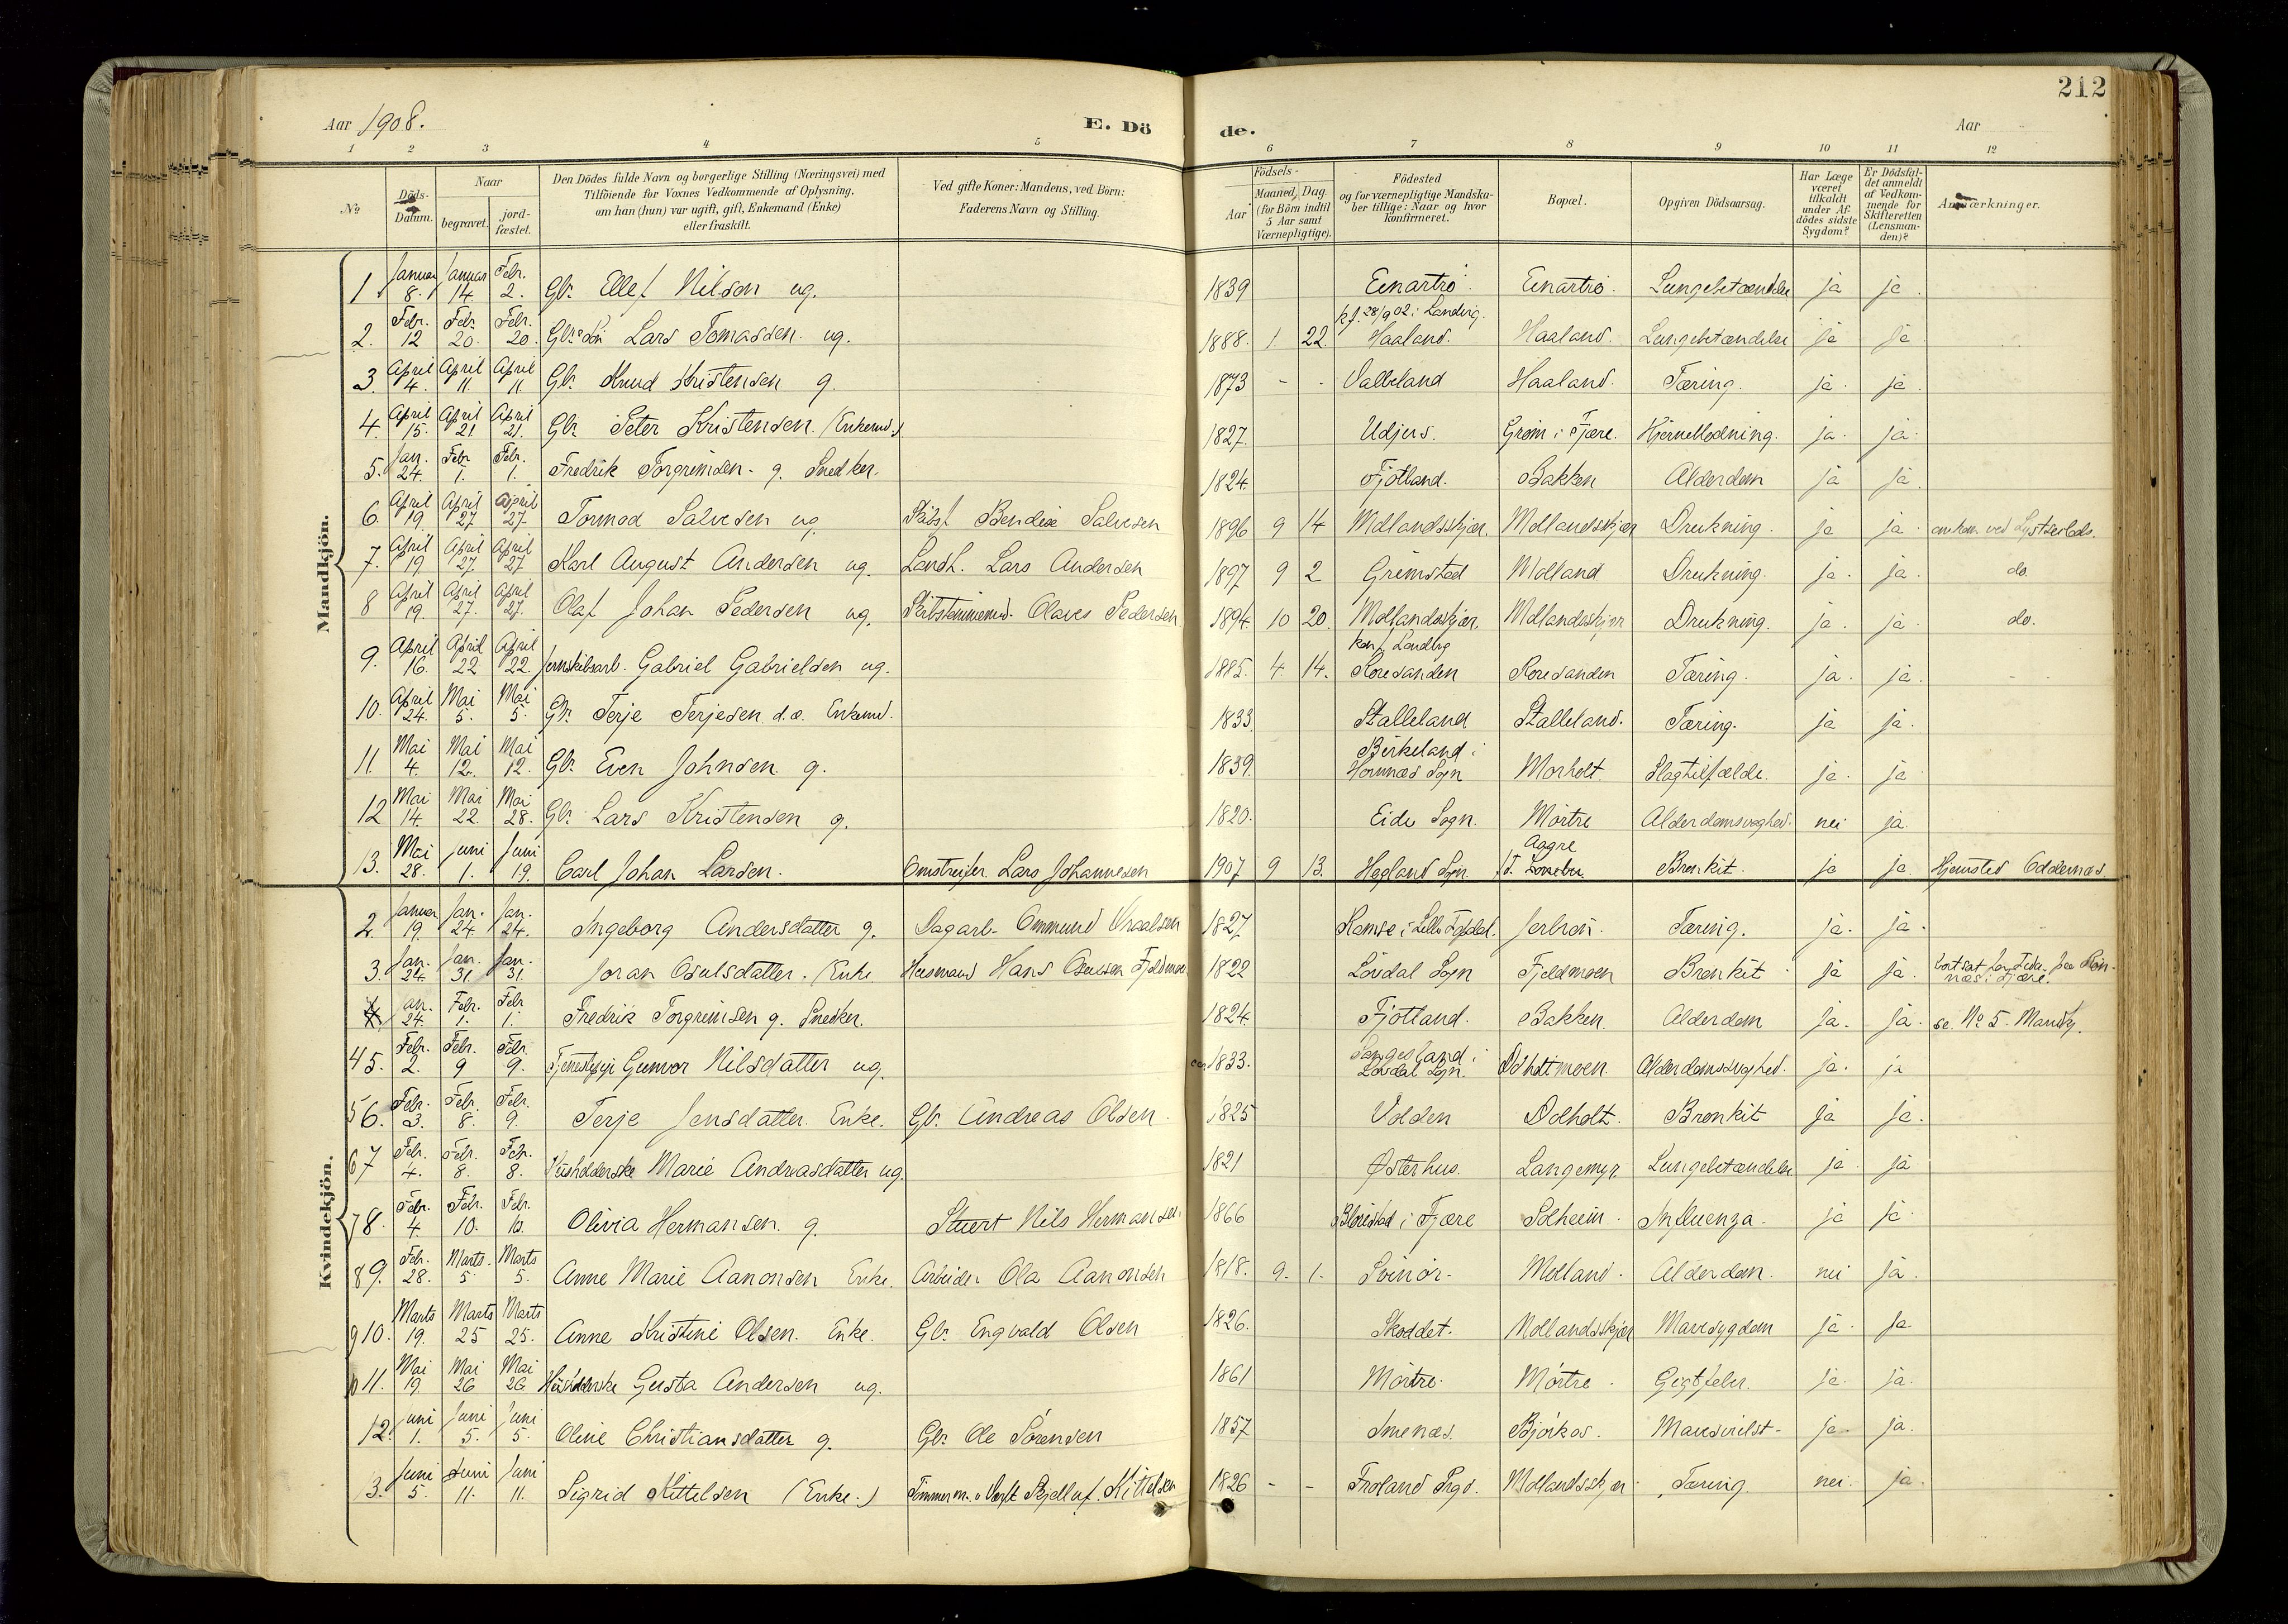 212
Aar 1908. E. Dö de. Aar
1 2 3 4 5 6 7 8 9 10 11 12
No
Döds-
Datum.
Naar
begravet.
jord-
fæstet.
Den Dödes fulde Navn og borgerlige Stilling (Næringsvei) med
Tilföiende for Voxnes Vedkommende af Oplysning,
om han (hun) var ugift, gift, Enkemand (Enke)
eller fraskilt.
Ved gifte Koner: Mandens, ved Börn:
Faderens Navn og Stilling.
Födsels-
Aar
Maaned, Dag
(for Börn indtil
5 Aar samt
Værnepligtige).
Födested
og for værnepligtige Mandska-
ber tillige: Naar og hvor
konfirmeret.
Bopæl.
Opgiven Dödsaarsag.
Har Læge
været
tilkaldt
under Af-
dödes sidste
Sygdom?
Er Dödsfal-
det anmeldt
af Vedkom-
mende for
Skifteretten
(Lensman-
den)?
Anmærkninger.
Mandkjön.
1. Januar 8. Januar 14 Febr. 2. Gbr. Ellef Nilsen ug. 1839 Einartrö. Einartrö. Lungebetændelse ja ja.
2. Febr. 12 Febr 20. Febr. 20. Gbr. Sön Lars Tomassen. ug. 1888. 1. 22. kf. 28/9 02. i Landvig. Haaland. Haaland. Lungebetændelse ja ja
3 April 4. April 11. April 11 Gbr. Knud Kristensen g. 1873 - - Valleland Haaland. Tæring. ja. ja.
4. April 15. April 21. April 21. Gbr. Peter Kristensen. (Enkemd.) 1827. Udjus. Gröm i Fjære. Hjerneblödning. ja. ja.
5. Jan. 24. Febr 1. Febr. 1. Fredrik Torgrimsen. g. Snedker. 1824. Fjotland. Bakken Alderdom ja ja.
6. April 19. April 27 April 27. Tormod Salvesen ug. Skibsf Bendix Salvesen 1896 9 14 Mollandsskjær. Mollandsskjær Drukning. ja ja. omkom ved Lystseilads.
7. April 19 April 27. April 27 Karl August Andersen ug. Landh. Lars Andersen 1897 9 2 Grimstad Molland Drukning. ja. ja. do.
8 April 19. April 27. April 27. Olaf Johan Pedersen ug. Skibstömmermd. Olaves Pedersen. 1894. 10 20. Mollandsskjær. Mollandsskjær Drukning. ja. ja. do.
9. April 16. April 22 April 22. Jernskibsarb. Gabriel Gabrielsen ug. 1885. 4. 14. konf Landvig Roresanden Roresanden Tæring. ja. ja.
10. April 24. Mai 5. Mai 5. Gbr. Terje Terjesen d.æ. Enkemd. 1833. Stalleland Stalleland. Tæring. ja ja.
11. Mai 4. Mai 12. Mai 12. Gbr. Even Johnsen. g. 1839. Birkeland i Hornnæs Sogn Morholt. Slagtilfælde. ja. ja
12 Mai 14. Mai 22. Mai 28. Gbr. Lars Kristensen g. 1820. Eide Sogn. Mörtre Alderdomssvaghed. nei ja.
13. Mai 28. Juni 1. Juni 19. Carl Johan Larsen. Omstreifer Lars Johannesen 1907 9 13. Hægland Sogn Aagre Bronkit. ja ja Hjemsted Oddernæs.
Kvindekjön.
2. Januar 19. Jan. 24. Jan. 24. Ingeborg Andersdatter g. Dagarb. Ommund Vraalsen 1827 Ramse i Lille Topdal. Tæring. ja. ja.
3. Jan. 24. Jan. 31. Jan. 31. Joran Osulsdatter. (Enke. Husmand Hans Osulsen Fjeldmoen 1822 Lövdal Sogn Fjeldmoen Bronkit ja ja.
Jan. 24. Febr. 1. Febr 1. Fredrik Torgrimsen g. Snedker. 1824. Fjotland. Bakken. Alderdom ja. ja. se. No 5. Mandkj.
4 5. Febr. 2. Febr. 9 Febr. 9. Gunvor Nilsdatter ug. 1833. Lövdal Sogn. Alderdomssvaghed. ja. ja
5 6. Febr. 3. Febr. 8. Febr. 9. Terje Jensdatter. Enke. Gbr. Andreas Olsen. 1825 Udden Dolholt. Bronkit ja ja.
6 7 Febr. 4. Febr. 8. Febr. 8. Husholderske Marie Andreasdatter ug. 1821 Østerhus. Langemyr. Lungebetændelse ja ja
7 8. Febr. 4. Febr. 10. Febr. 10. Olivia Hermansen. g. Stuert Nils Hermansen. 1866 i Fjære Solheim. Influenza. ja ja.
8 9. Febr. 28. Marts. 5. Marts 5. Anne Marie Aanonsen Enke. Arbeider Ola Aanonsen 1818. 9. 1. Svinör. Molland. Alderdom. nei ja.
9 10. Marts 19. Marts 25 Marts 25. Anne Kristine Olsen. Enke. Gbr. Engvald Olsen 1826. Skoddet. Mollandsskjær Mavesygdom ja. ja.
10 11. Mai 19. Mai 26 Mai 26 Husholderske Gusta Andersen ug. 1861 Mörtre. Mörtre. Gigtfeber. ja. ja.
12. Juni 1. Juni 5. Juni 5. Oline Christiansdatter g. Gbr. Ole Sörensen 1857 Imenæs. Björkos. ja. ja.
13. Juni 5. Juni 11. Juni 11. Sigrid Kittelsen (Enke.) Tömmerm. Kittelsen 1826 - - Froland Prgd. Mollandsskjær Tæring nei. ja.